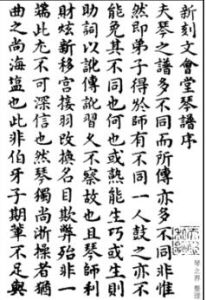 新刻文會堂琴譜序
夫琴之譜多不同而所傳亦多不同非惟
然即弟子得於師有不同一人鼓之亦不
能免其不同也何也或熟能生巧或生則
助詞以訛傳訛習久不察故也且琴師利
財炫新移宮接羽改換名目欺弊殆非一
端此尤不可深信也然琴獨尚浙操者猶
曲之尚海鹽也此非伯牙子期輩不足與